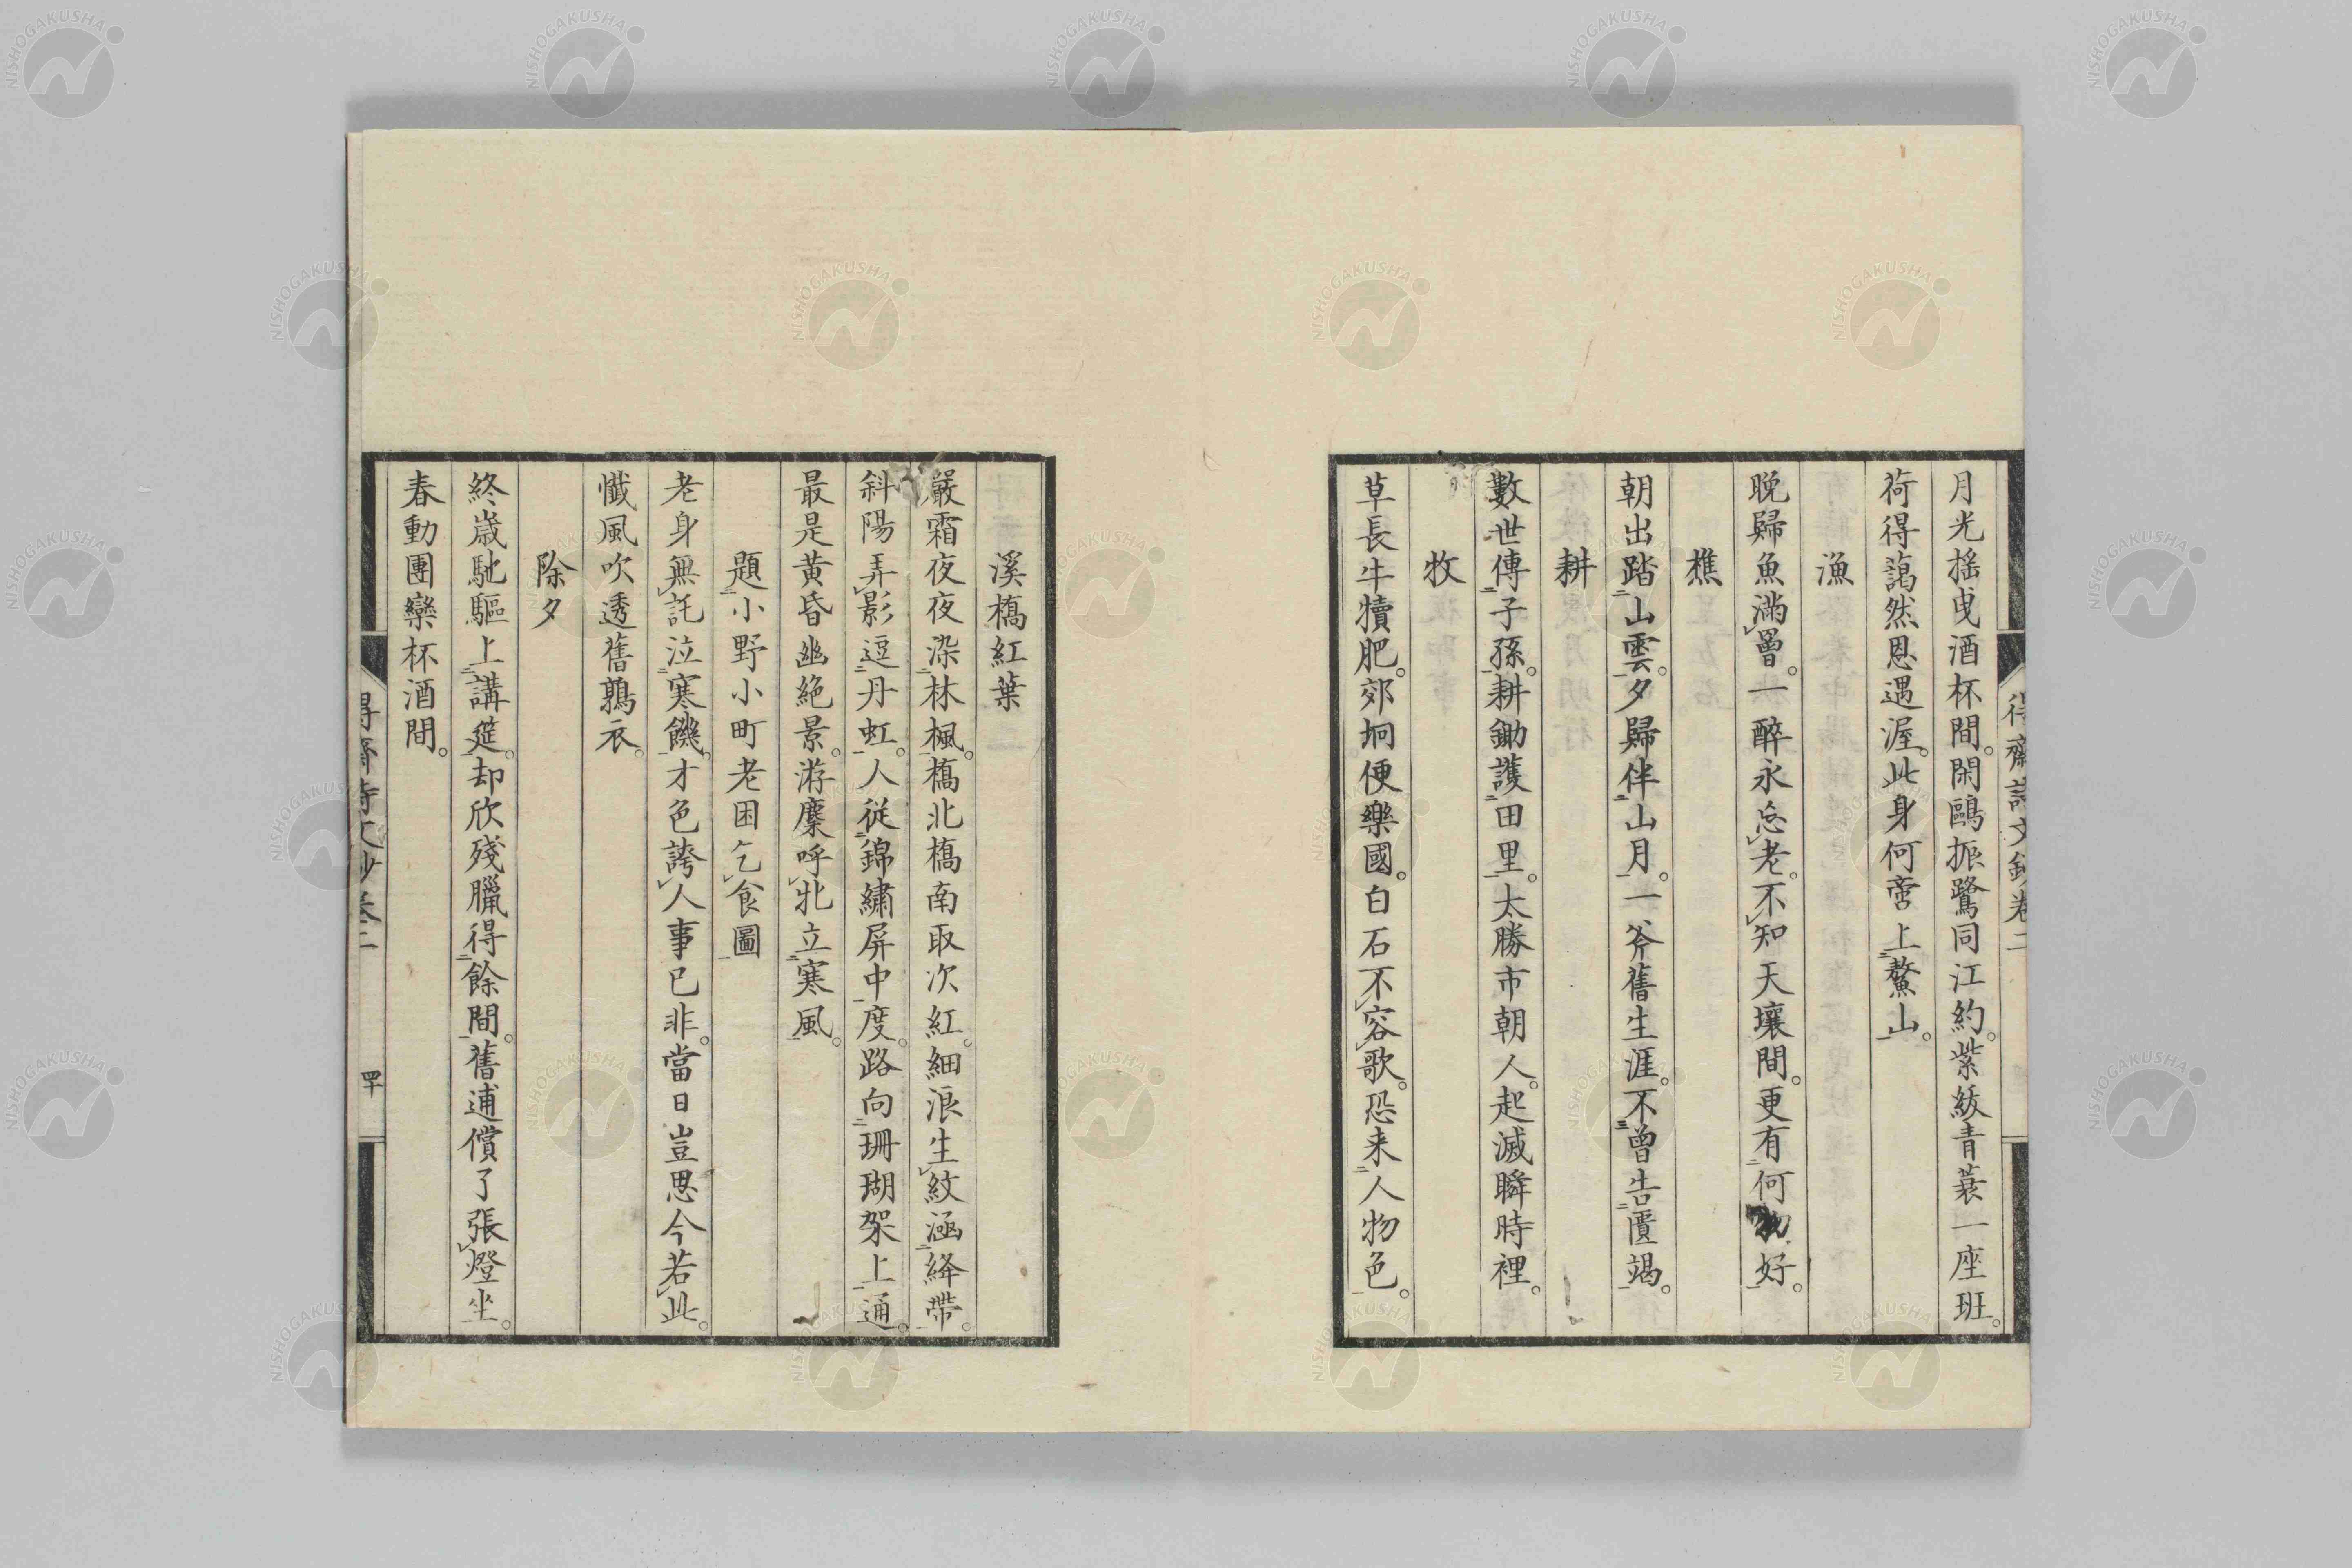 月光搖曳酒杯間。閑鷗振鷺同江約。紫紱青蓑一座班。
荷得藹然恩遇渥。此身何啻上鰲山。
漁
晚歸魚滿罾。一醉永忘老。不知天壤間。更有何物好。
樵
朝出踏山雲。夕歸伴山月。一斧舊生涯。不曾告匱竭。
耕
數世傳子孫。耕鋤護田里。太勝市朝人。起滅瞬時裡。
牧
草長牛犢肥。郊坰便樂國。白石不容歌。恐来人物色。
得齋詩文鈔卷二
溪橋紅葉
嚴霜夜夜染林楓。橋北橋南取次紅。細浪生紋涵絳帶。
斜陽弄影逗丹虹。人從錦繡屏中度。路向珊瑚架上通。
最是黃昏幽絕景。游麋呼牝立寒風。
題小野小町老困乞食圖
老身無託泣寒饑。才色誇人事已非。當日豈思今若此。
懺風吹透舊鶉衣。
除夕
終歲馳驅上講筵。却欣殘臘得餘間。舊逋償了張燈坐。
春動團欒杯酒間。
得齋詩文鈔卷二
四十
NISHOGAKUSHA